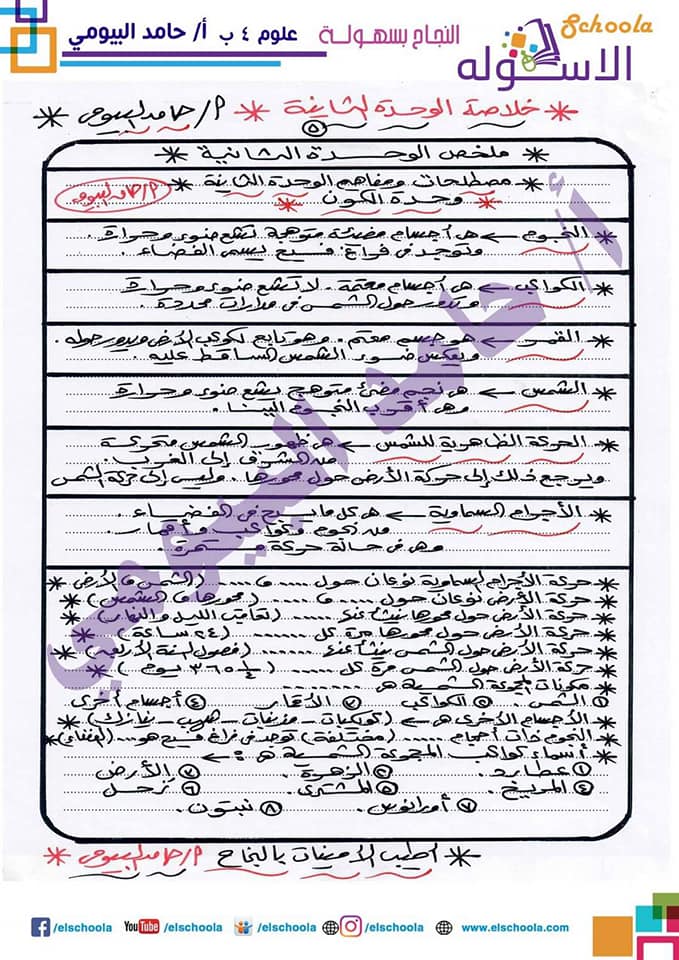 Schoola
الاسكوله
النجاح بسهولة
علوم ٤ ب أ/ حامد البيومي
* خلاصة الوحدة الثانية * م/ حامد البيومى *
٥
* ملخص الوحدة الثانية *
* مصطلحات ومفاهيم الوحدة الثانية *
م/ حامد البيومى
* وحدة الكون *
* النجوم ← هى أجسام مضيئة متوهجة تشع ضوء وحرارة
وتوجد فى فراغ فسيح يسمى الفضاء .
* الكواكب ← هى أجسام معتمة . لا تشع ضوء وحرارة
وتدور حول الشمس فى مدارات محددة .
* القمر ← هو جسم معتم . وهو تابع لكوكب الأرض ويدور حوله .
ويعكس ضوء الشمس الساقط عليه .
* الشمس ← هى نجم مضئ متوهج يشع ضوء وحرارة
وهى أقرب النجوم إلينا .
* الحركة الظاهرية للشمس ← هى ظهور الشمس متحركة
من الشرق إلى الغرب .
ويرجع ذلك إلى حركة الأرض حول محورها . وليس إلى حركة الشمس
* الأجرام السماوية ← هى كل ما يسبح فى الفضاء .
من نجوم وكواكب وأقمار .
وهى فى حالة حركة مستمرة .
* حركة الأجرام السماوية نوعان حول ...... و ...... (الشمس و الأرض) *
* حركة الأرض نوعان حول ...... و ...... (محورها و الشمس) *
* حركة الأرض حول محورها ينشأ عنه ...... (تعاقب الليل والنهار) *
* حركة الأرض حول محورها مرة كل ...... (٢٤ ساعة) *
* حركة الأرض حول الشمس ينشأ عنه ...... (فصول السنة الأربعة) *
* حركة الأرض حول الشمس مرة كل ...... (٣٦٥ ١/٤ يوم) *
* مكونات المجموعة الشمسية هى ......
① الشمس . ② الكواكب ③ الأقمار . ④ أجسام أخرى
* الأجسام الأخرى هى ← (كويكبات - مذنبات - شهب - نيازك) *
* النجوم ذات أحجام ...... (مختلفة) توجد فى فراغ فسيح هو ... (الفضاء) *
* أسماء كواكب المجموعة الشمسية هى :-
① عطارد . ② الزهرة . ③ الأرض
④ المريخ . ⑤ المشترى . ⑥ زحل
⑦ أورانوس . ⑧ نبتون .
* أطيب الأمنيات بالنجاح م/ حامد البيومى *
أ/ حامد البيومي
/elschoola
YouTube /elschoola
/elschoola
/elschoola
www.elschoola.com